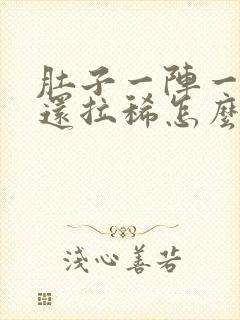 肚子一陣一
還拉稀怎麼
淺心善若